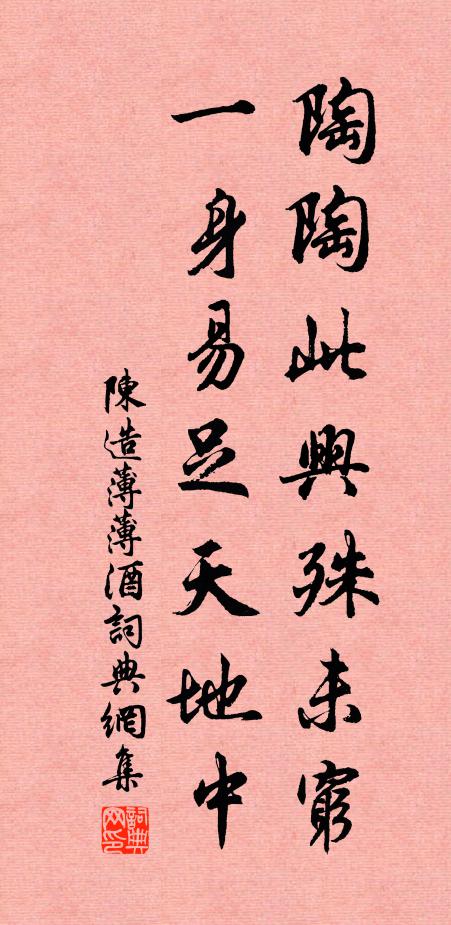 陶陶此興殊未窮
一身易足天地中
陳造薄薄酒詞典網集
詞典网印